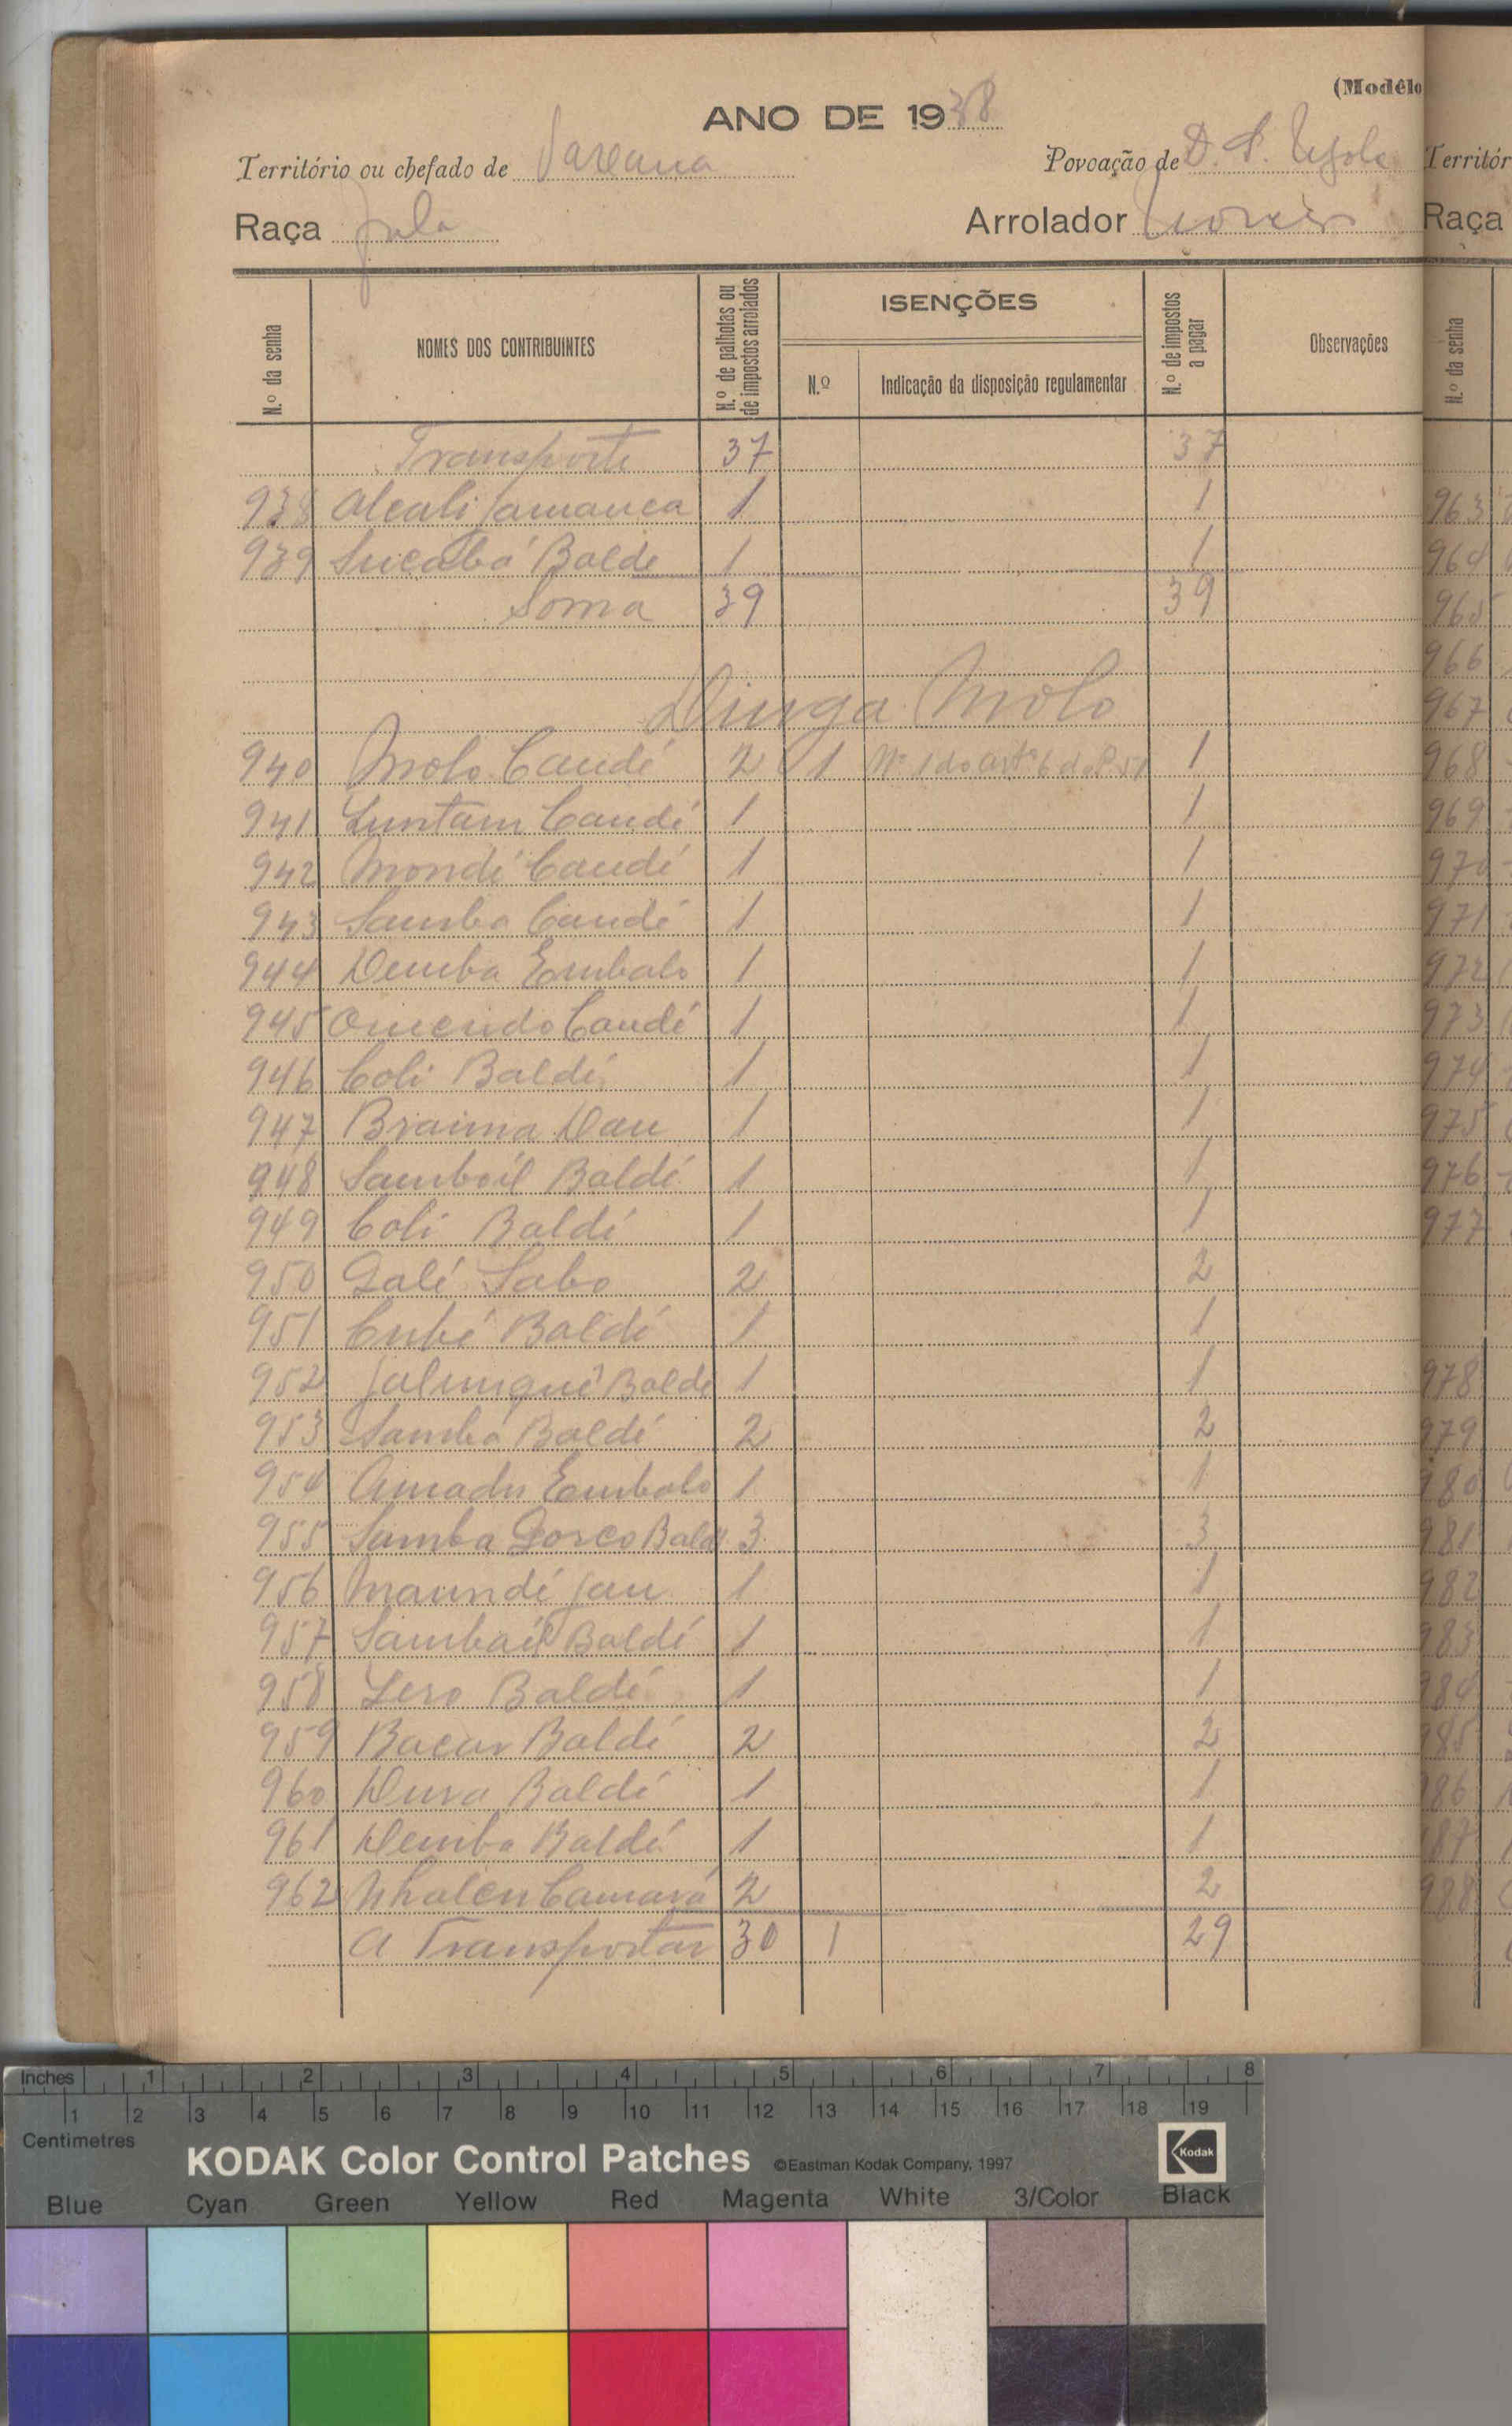 (Modêlo
ANO DE 1938
Território ou chefado de Sareana
Povoação de D. S.
Raça Fula
Arrolador
N.º da senha
NOMES DOS CONTRIBUINTES
N.º de palhotas ou de impostos arrolados
ISENÇÕES
N.º
Indicação da disposição regulamentar
N.º de impostos a pagar
Observações
Transporte 37 37
938 Alcali Jamanca 1 1
939 Sucabá Balde 1 1
Soma 39 39
Dinga Molo
940 Molo Candé 2 1 Nº 1 do artº 6 do 1
941 Suntam Candé 1 1
942 Mondé Candé 1 1
943 Samba Candé 1 1
944 Demba Embalo 1 1
945 Candé 1 1
946 Coli Baldé 1 1
947 Braima Dau 1 1
948 Samboil Baldé 1 1
949 Coli Baldé 1 1
950 Galé Sabo 2 2
951 Cubé Baldé 1 1
952 Jalunquê Balde 1 1
953 Samba Baldé 2 2
954 Amadu Embalo 1 1
955 Samba Gorco Balde 3 3
956 Maundé Jau 1 1
957 Sambail Baldé 1 1
958 Sero Baldé 1 1
959 Bacar Baldé 2 2
960 Dura Baldé 1 1
961 Demba Baldé 1 1
962 Nhalen Camará 2 2
A Transportar 30 1 29
Territór
Raça
N.º da senha
963
964
965
966
967
968
969
970
971
972
973
974
975
976
977
978
979
980
981
982
983
984
985
986
987
988
Inches 1 2 3 4 5 6 7 8
1 2 3 4 5 6 7 8 9 10 11 12 13 14 15 16 17 18 19
Centimetres
KODAK Color Control Patches ©Eastman Kodak Company, 1997 Kodak
Blue Cyan Green Yellow Red Magenta White 3/Color Black